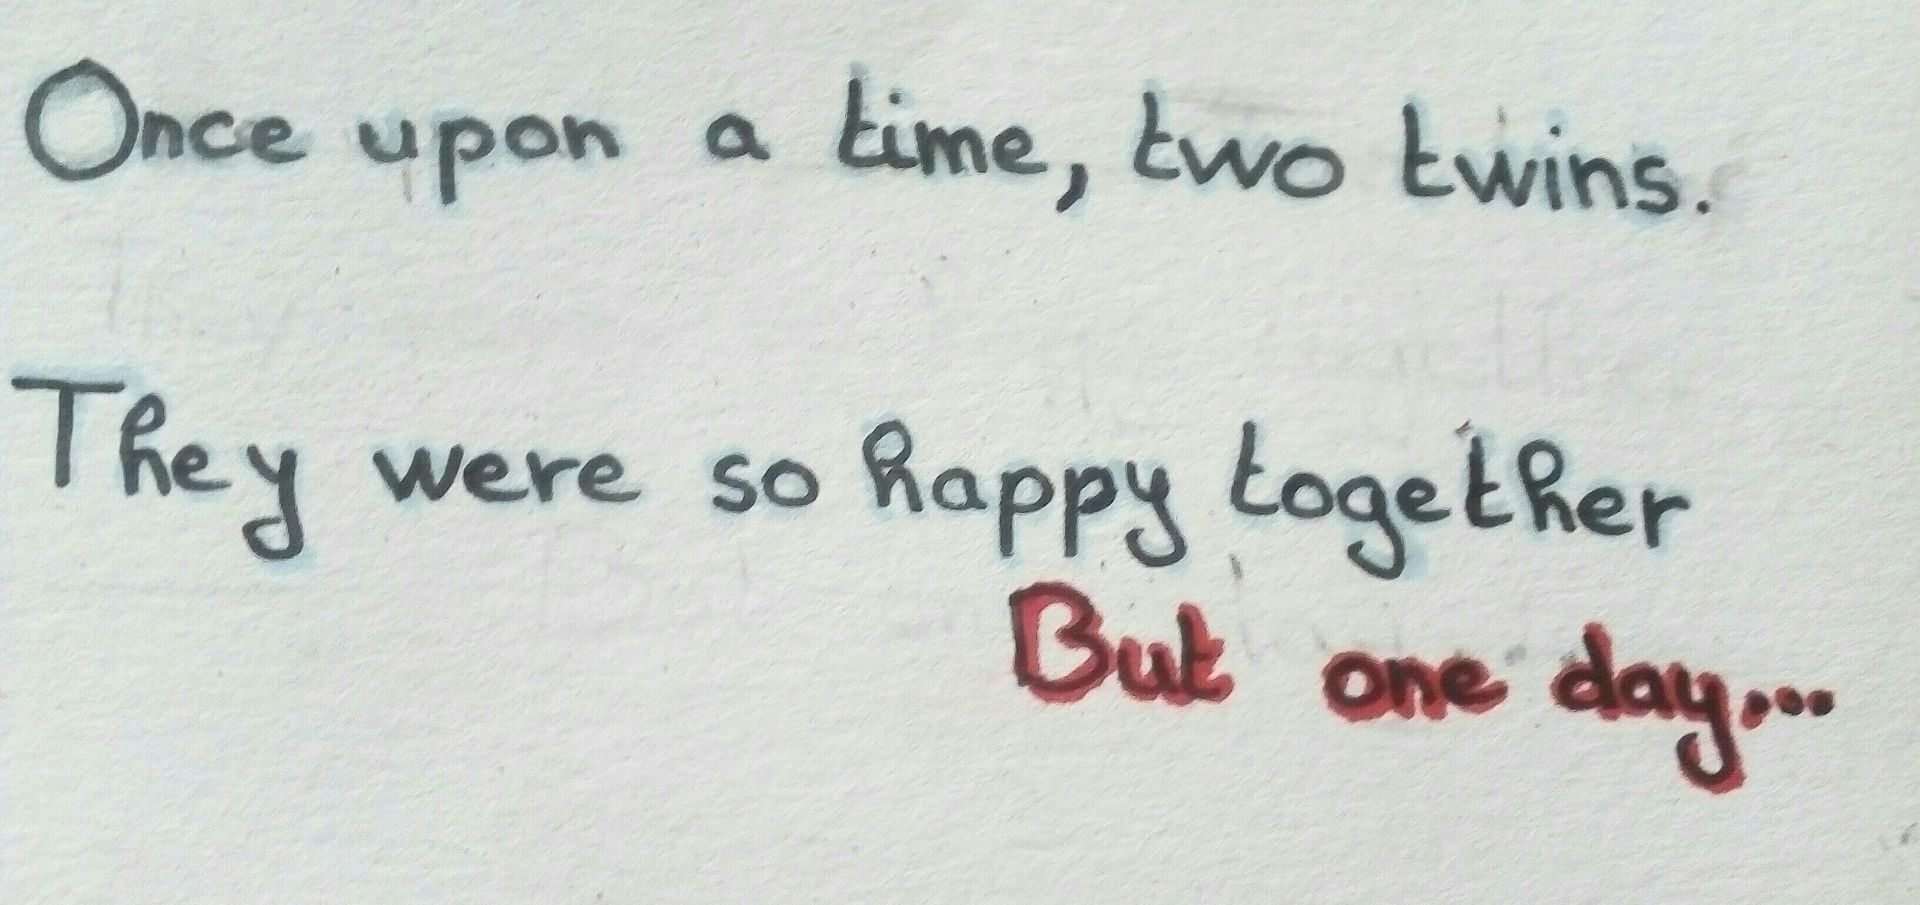 Once upon a time, two twins.
They were so happy together
But one day...